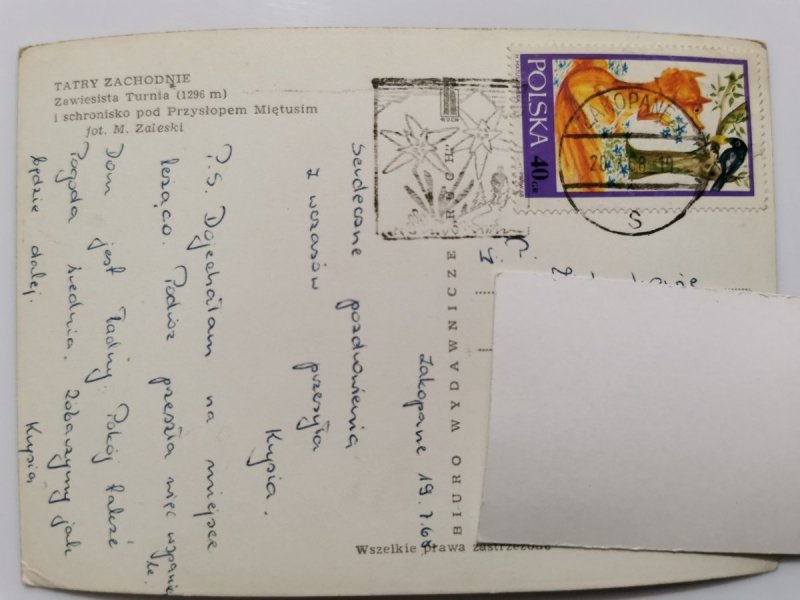 TATRY ZACHODNIE
Zawiesista Turnia (1296 m)
i schronisko pod Przysłopem Miętusim
fot. M. Zaleski
Zakopane 19.7.68
Serdeczne pozdrowienia
z wczasów przesyła
Krysia.
P.S. Dojechałam na miejsce
leżąco. Podróż przeszła więc wspania
le.
Dom jest ładny. Pokój także
Pogoda średnia. Zobaczymy jak
będzie dalej.
Krysia
BIURO WYDAWNICZE „RUCH"
RUCH
Wszelkie prawa zastrzeżone
POLSKA 40 GR
ZAKOPANE
S